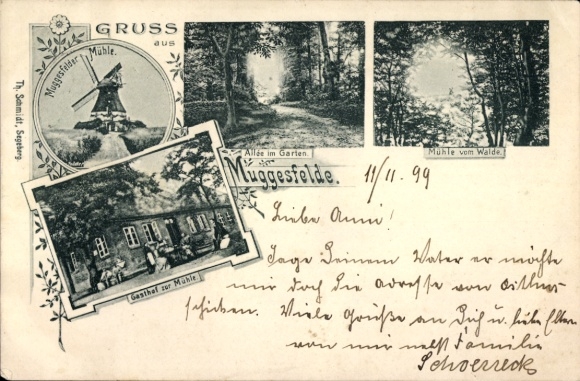 GRUSS
aus
Muggesfelder Mühle.
Th. Schmidt, Segeberg.
Allée im Garten.
Mühle vom Walde.
Muggesfelde.
Gasthof zur Mühle.
11/11. 99
Liebe Anni!
Sage Deinem Vater er möchte
mir doch die Adresse von
schicken. Viele Grüße an Dich u. liebe Eltern
von mir nebst Familie